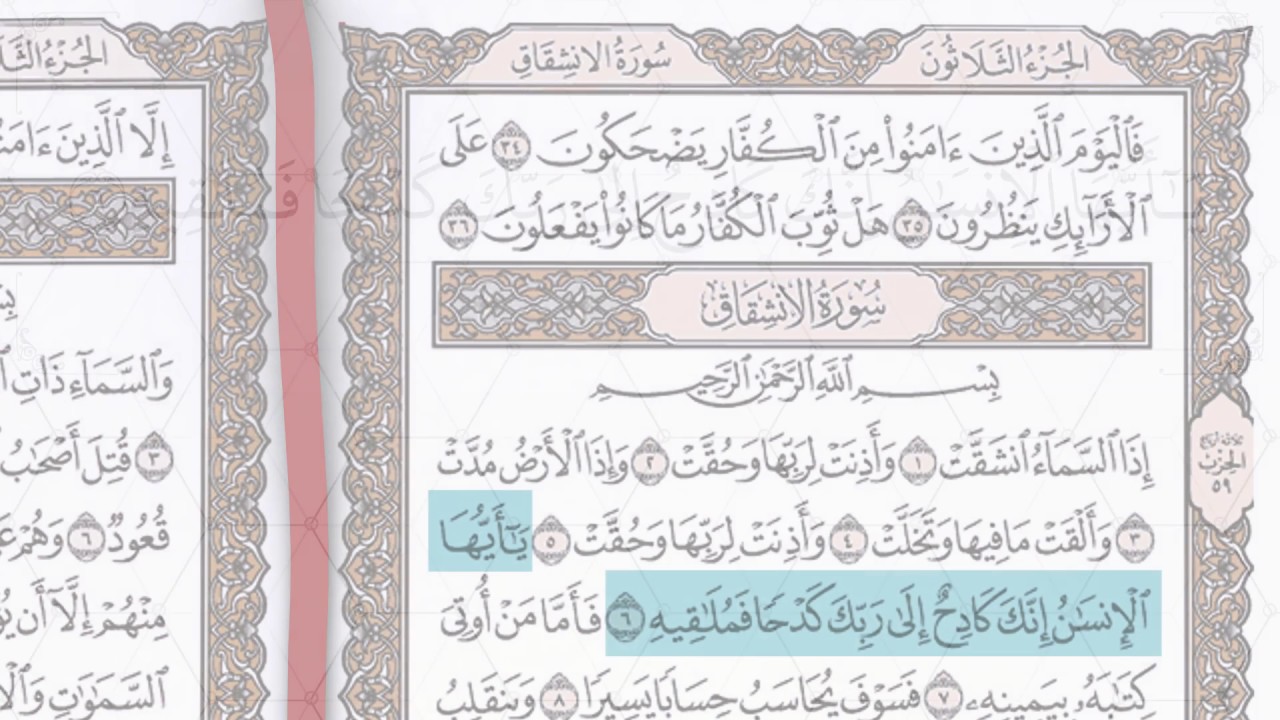 الجُزْءُ الثَّلَاثُونَ
سُورَةُ الانشِقَاقِ
فَٱلْيَوْمَ ٱلَّذِينَ ءَامَنُوا۟ مِنَ ٱلْكُفَّارِ يَضْحَكُونَ ٣٤ عَلَى
ٱلْأَرَآئِكِ يَنظُرُونَ ٣٥ هَلْ ثُوِّبَ ٱلْكُفَّارُ مَا كَانُوا۟ يَفْعَلُونَ ٣٦
سُورَةُ الانشِقَاقِ
بِسْمِ ٱللَّهِ ٱلرَّحْمَٰنِ ٱلرَّحِيمِ
إِذَا ٱلسَّمَآءُ ٱنشَقَّتْ ١ وَأَذِنَتْ لِرَبِّهَا وَحُقَّتْ ٢ وَإِذَا ٱلْأَرْضُ مُدَّتْ
٣ وَأَلْقَتْ مَا فِيهَا وَتَخَلَّتْ ٤ وَأَذِنَتْ لِرَبِّهَا وَحُقَّتْ ٥ يَٰٓأَيُّهَا
ٱلْإِنسَٰنُ إِنَّكَ كَادِحٌ إِلَىٰ رَبِّكَ كَدْحًا فَمُلَٰقِيهِ ٦ فَأَمَّا مَنْ أُوتِىَ
كِتَٰبَهُۥ بِيَمِينِهِۦ ٧ فَسَوْفَ يُحَاسَبُ حِسَابًا يَسِيرًا ٨ وَيَنقَلِبُ
ثلاثة أرباع
الحِزْب
٥٩
إِلَّا ٱلَّذِينَ
وَٱلسَّمَآءِ ذَاتِ
٣ قُتِلَ أَصْحَٰبُ
قُعُودٌ ٦ وَهُمْ
مِنْهُمْ إِلَّآ أَن
ٱلسَّمَٰوَٰتِ